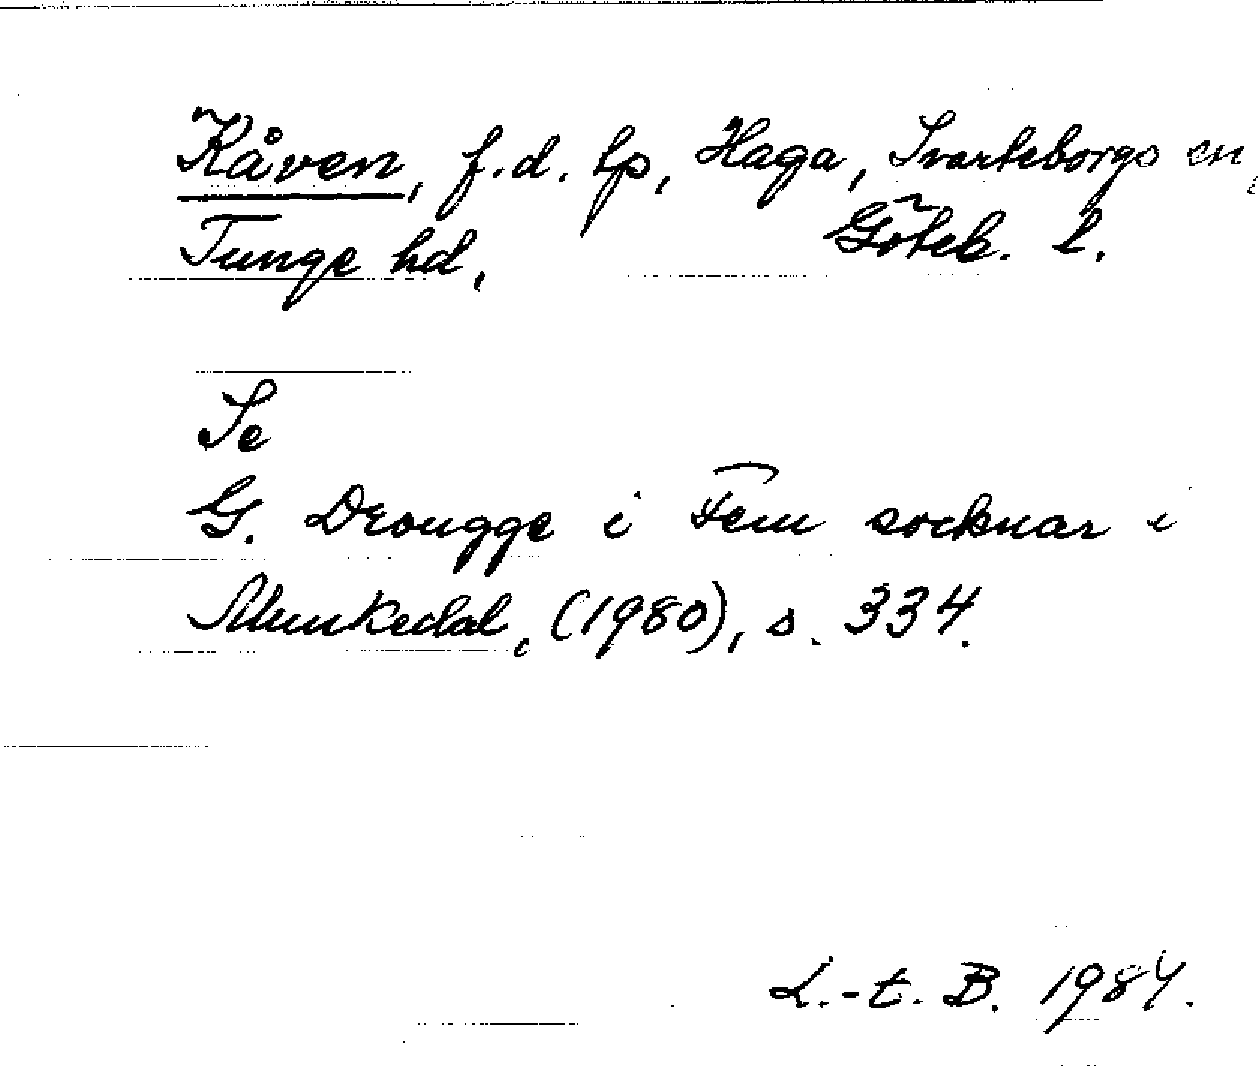 Kåven, f.d. lp, Haga, Svarteborgs sn,
Tunge hd, Göteb. l.
Se
G. Drougge i Fem socknar i
Munkedal, (1980), s. 334.
L.-t. B. 1984.